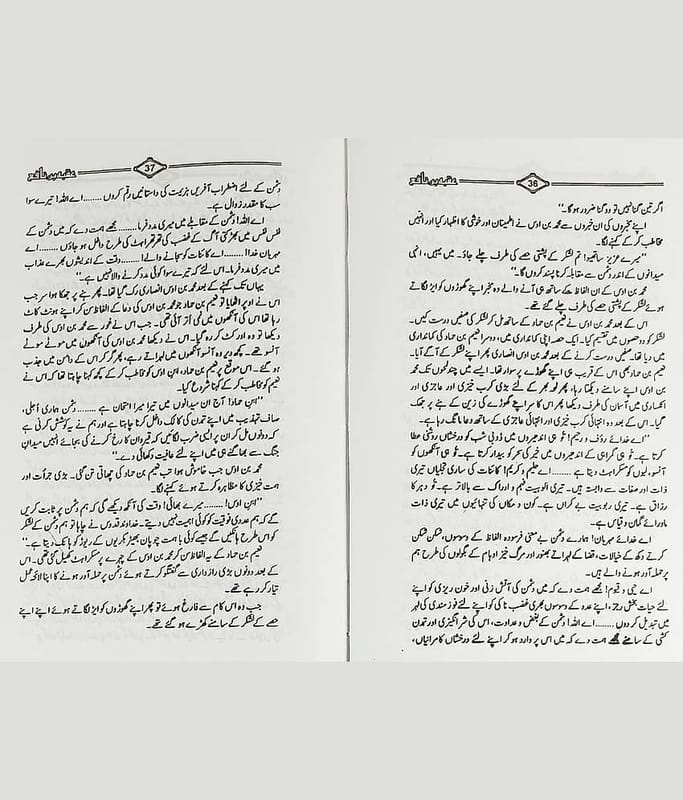 عقبہ بن نافع
36
اگر تین گنا نہیں تو دو گنا ضرور ہو گا۔"
اپنے مخبروں کی ان خبروں سے محمد بن اوس نے اطمینان اور خوشی کا اظہار کیا اور انہیں
مخاطب کر کے کہنے لگا۔
"میرے عزیز ساتھیو! تم لشکر کے پشتی حصے کی طرف چلے جاؤ۔ میں یہیں، انہی
میدانوں کے اندر دشمن سے مقابلہ کرنا پسند کروں گا۔"
محمد بن اوس کے ان الفاظ کے ساتھ ہی آنے والے وہ مخبر اپنے گھوڑوں کو ایڑ لگاتے
ہوئے لشکر کے پشتی حصے کی طرف چلے گئے تھے۔
اس کے بعد محمد بن اوس نے نعیم بن حماد کے ساتھ مل کر لشکر کی صفیں درست کیں۔
لشکر کو دو حصوں میں تقسیم کیا۔ ایک حصہ اپنی کمانداری میں، دوسرا نعیم بن حماد کی کمانداری
میں دیا تھا۔ صفیں درست کرنے کے بعد محمد بن اوس انصاری پھر اپنے لشکر کے آگے آیا۔
نعیم بن حماد بھی اس کے قریب ہی اپنے گھوڑے پر سوار تھا۔ ایسے میں چند لمحوں تک محمد
بن اوس اپنے سامنے دیکھتا رہا، پھر لمحہ بھر کے لئے بڑی کرب خیزی اور عاجزی اور
انکساری میں آسمان کی طرف دیکھا پھر اس کا سر اپنے گھوڑے کی زین کے ہنے پر جھک
گیا۔ اس کے بعد وہ انتہائی کرب خیزی اور انتہائی عاجزی کے ساتھ دعا مانگ رہا ہے۔
"اے خدائے رؤف و رحیم! تُو ہی اندھیروں میں ڈوبی شب کو درخشاں روشنی عطا
کرتا ہے۔ تُو ہی گمراہی کے اندھیروں میں خیر کی سحر کو بیدار کرتا ہے۔ تُو ہی آنکھوں کو
آنسو، لبوں کو مسکراہٹ دیتا ہے ........ اے علیم و کریم! کائنات کی ساری تجلیاں تیری
ذات اور صفات سے وابستہ ہیں۔ تیری الوہیت فہم و ادراک سے بالاتر ہے۔ تُو دہر کا
رزاق ہے۔ تیری ربوبیت بے کراں ہے۔ کون و مکاں کی تنہائیوں میں تیری ذات
ماورائے گمان و قیاس ہے۔
اے خدائے مہربان! ہمارے دشمن بے معنی فرسودہ الفاظ کے وسوسوں، چھن چھن
کرتے دکھ کے خیالات، قضا کے لہراتے بھنور اور مرگ خیز اوہام کے بگولوں کی طرح ہم
پر حملہ آور ہونے والے ہیں۔
اے حی و قیوم! مجھے ہمت دے کہ میں دشمن کی آتش زنی اور خون ریزی کو اپنے
لئے حیات بخش رجز، اپنے عدو کے وسوسوں بھری غضب ناکی کو اپنے لئے فوز مندی کی لہر
میں تبدیل کر دوں ........ اے اللہ! دشمن کے بغض و عداوت، اس کی شر انگیزی اور تمدن
کشی کے سامنے مجھے ہمت دے کہ میں اس پر وارد ہو کر اپنے لئے درخشاں کامرانیاں،
عقبہ بن نافع
37
دشمن کے لئے اضطراب آفریں ہزیمت کی داستانیں رقم کروں ........ اے اللہ! تیرے سوا
سب کا مقدر زوال ہے۔
اے اللہ! دشمن کے مقابلے میں میری مدد فرما ........ مجھے ہمت دے کہ میں دشمن کے
نفس نفس میں بھڑکتی آگ کے غضب کی تھرتھراہٹ کی طرح داخل ہو جاؤں ........ اے
مہربان خدا! ........ اے کائنات کو سجانے والے! ........ وقت کے اندیشوں بھرے عذاب
میں میری مدد فرما۔ اس لئے کہ تیرے سوا کوئی مدد کرنے والا نہیں ہے۔"
یہاں تک کہنے کے بعد محمد بن اوس انصاری رک گیا تھا۔ پھر ہنے پر جھکا ہوا سر جب
اس نے اوپر اٹھایا تو نعیم بن حماد جو محمد بن اوس کی دعا کے الفاظ سن کر اپنے ہونٹ کاٹ
رہا تھا اس کی آنکھوں میں نمی اُتر آئی تھی۔ جب اس نے غور سے محمد بن اوس کی طرف
دیکھا تو وہ اور کٹ کر رہ گیا۔ اس نے دیکھا محمد بن اوس کی آنکھوں میں موٹے موٹے
آنسو تھے۔ کچھ دیر وہ آنسو آنکھوں میں لہراتے رہے، پھر گر کر اس کے دامن میں جذب
ہو گئے۔ اس موقع پر نعیم بن حماد، ابن اوس کو مخاطب کر کے کچھ کہنا چاہتا تھا کہ اس نے
نعیم کو مخاطب کر کے کہنا شروع کیا۔
"ابن حماد! آج ان میدانوں میں تیرا میرا امتحان ہے ........ دشمن ہماری اُجلی،
صاف تہذیب میں اپنے تمدن کی کالک داخل کرنا چاہتا ہے اور ہم نے یہ کوشش کرنی ہے
کہ دونوں مل کر ان پر ایسی ضرب لگائیں کہ قیروان کا رخ کرنے کی بجائے انہیں میدانِ
جنگ سے بھاگنے ہی میں اپنے لئے عافیت دکھائی دے۔"
محمد بن اوس جب خاموش ہوا تب نعیم بن حماد کی چھاتی تن گئی۔ بڑی جرأت اور
ہمت خیزی کا مظاہرہ کرتے ہوئے کہنے لگا۔
"ابن اوس! ........ میرے بھائی! وقت کی آنکھ دیکھے گی کہ ہم دشمن پر ثابت کریں
گے کہ ہم عددی فوقیت کو کوئی اہمیت نہیں دیتے۔ خداوند قدوس نے چاہا تو ہم دشمن کے لشکر
کو اس طرح ہانکیں گے جیسے کوئی با ہمت چرواہا بھیڑ بکریوں کے ریوڑ کو ہانک دیتا ہے۔"
نعیم بن حماد کے یہ الفاظ سن کر محمد بن اوس کے چہرے پر مسکراہٹ پھیل گئی تھی۔ اس
کے بعد دونوں بڑی رازداری سے گفتگو کرتے ہوئے دشمن پر حملہ آور ہونے کا اپنا لائحہ عمل
تیار کر رہے تھے۔
جب وہ اس کام سے فارغ ہوئے تو پھر اپنے گھوڑوں کو ایڑ لگاتے ہوئے اپنے اپنے
حصے کے لشکر کے سامنے کھڑے ہو گئے تھے۔